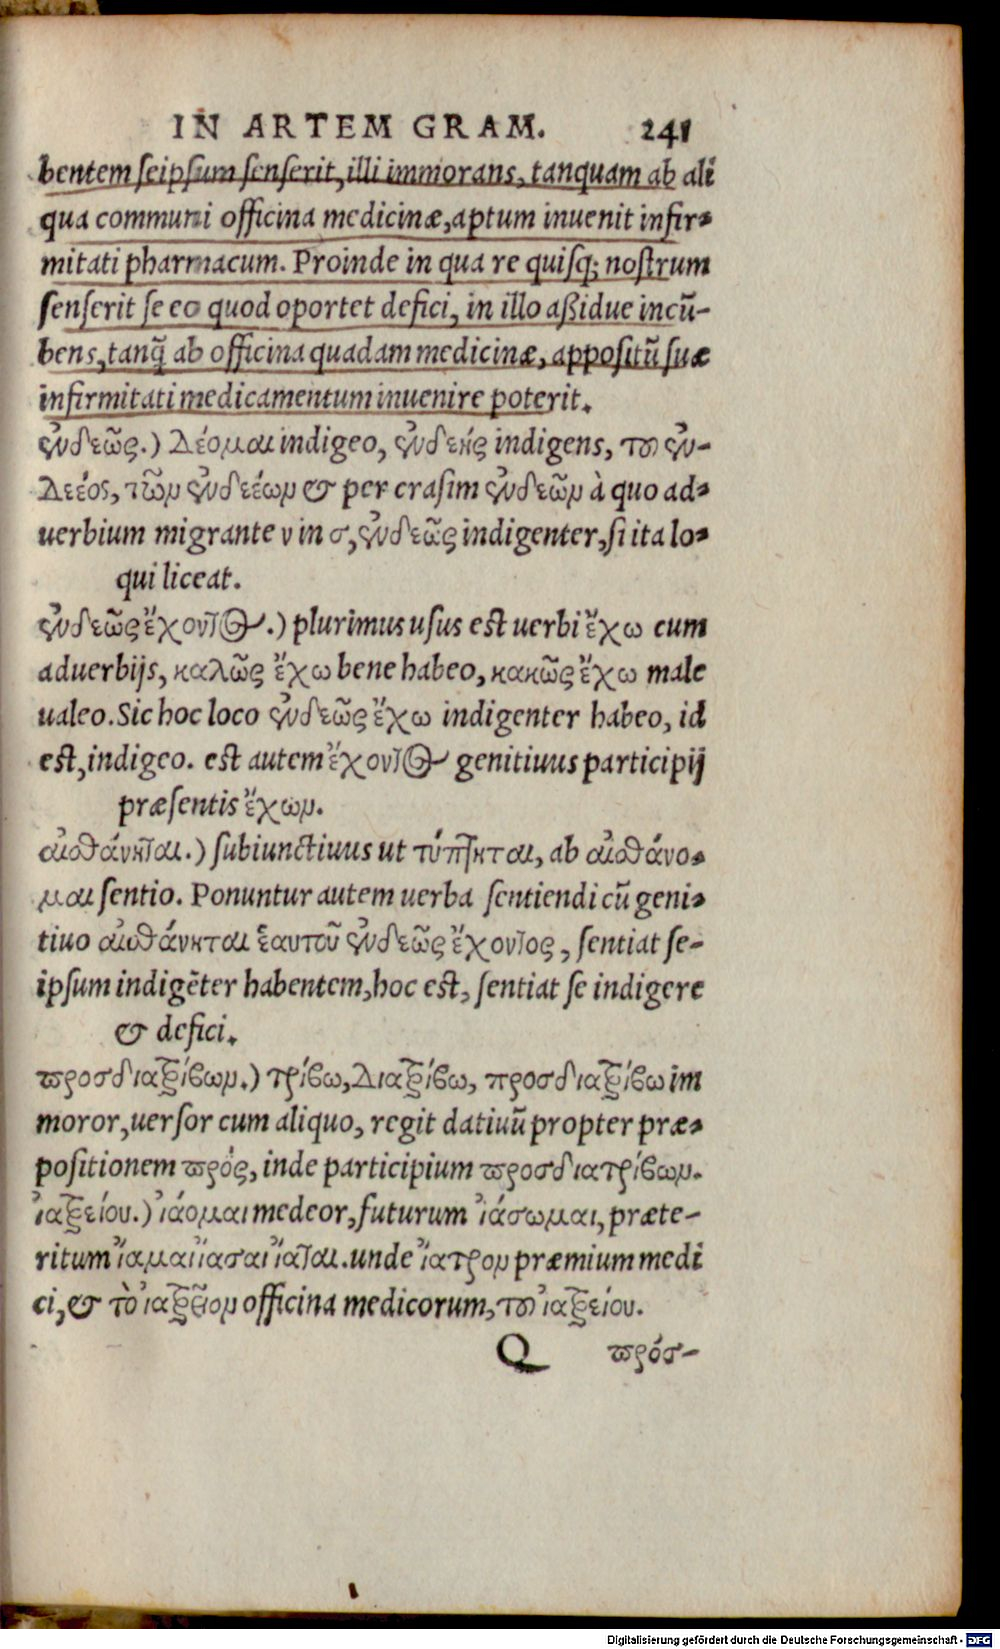 IN ARTEM GRAM. 241
bentem seipsum senserit, illi immorans, tanquam ab ali
qua communi officina medicinæ, aptum inuenit infir-
mitati pharmacum. Proinde in qua re quisq; nostrum
senserit se eo quod oportet defici, in illo aßidue incū-
bens, tanq̃ ab officina quadam medicinæ, appositū suæ
infirmitati medicamentum inuenire poterit.
ἐνδεῶς.) Δέομαι indigeo, ἐνδεὴς indigens, τοῦ ἐν-
δεέος, τῶν ἐνδεέων & per crasim ἐνδεῶν à quo ad-
uerbium migrante ν in σ, ἐνδεῶς indigenter, si ita lo-
qui liceat.
ἐνδεῶς ἔχοντος.) plurimus usus est uerbi ἔχω cum
aduerbijs, καλῶς ἔχω bene habeo, κακῶς ἔχω male
ualeo. Sic hoc loco ἐνδεῶς ἔχω indigenter habeo, id
est, indigeo. est autem ἔχοντος genitiuus participij
præsentis ἔχων.
αἰσθάνηται.) subiunctiuus ut τύπτηται, ab αἰσθάνο-
μαι sentio. Ponuntur autem uerba sentiendi cū geni-
tiuo αἰσθάνηται ἑαυτοῦ ἐνδεῶς ἔχοντος, sentiat se-
ipsum indigēter habentem, hoc est, sentiat se indigere
& defici.
προσδιατρίβων.) τρίβω, Διατρίβω, προσδιατρίβω im
moror, uersor cum aliquo, regit datiuū propter præ-
positionem πρός, inde participium προσδιατρίβων.
ἰατρείου.) ἰάομαι medeor, futurum ἰάσωμαι, præte-
ritum ἴαμαι ἴασαι ἴαται. unde ἴατρον præmium medi
ci, & τὸ ἰατρεῖον officina medicorum, τοῦ ἰατρείου.
Q πρόσ-
Digitalisierung gefördert durch die Deutsche Forschungsgemeinschaft - DFG